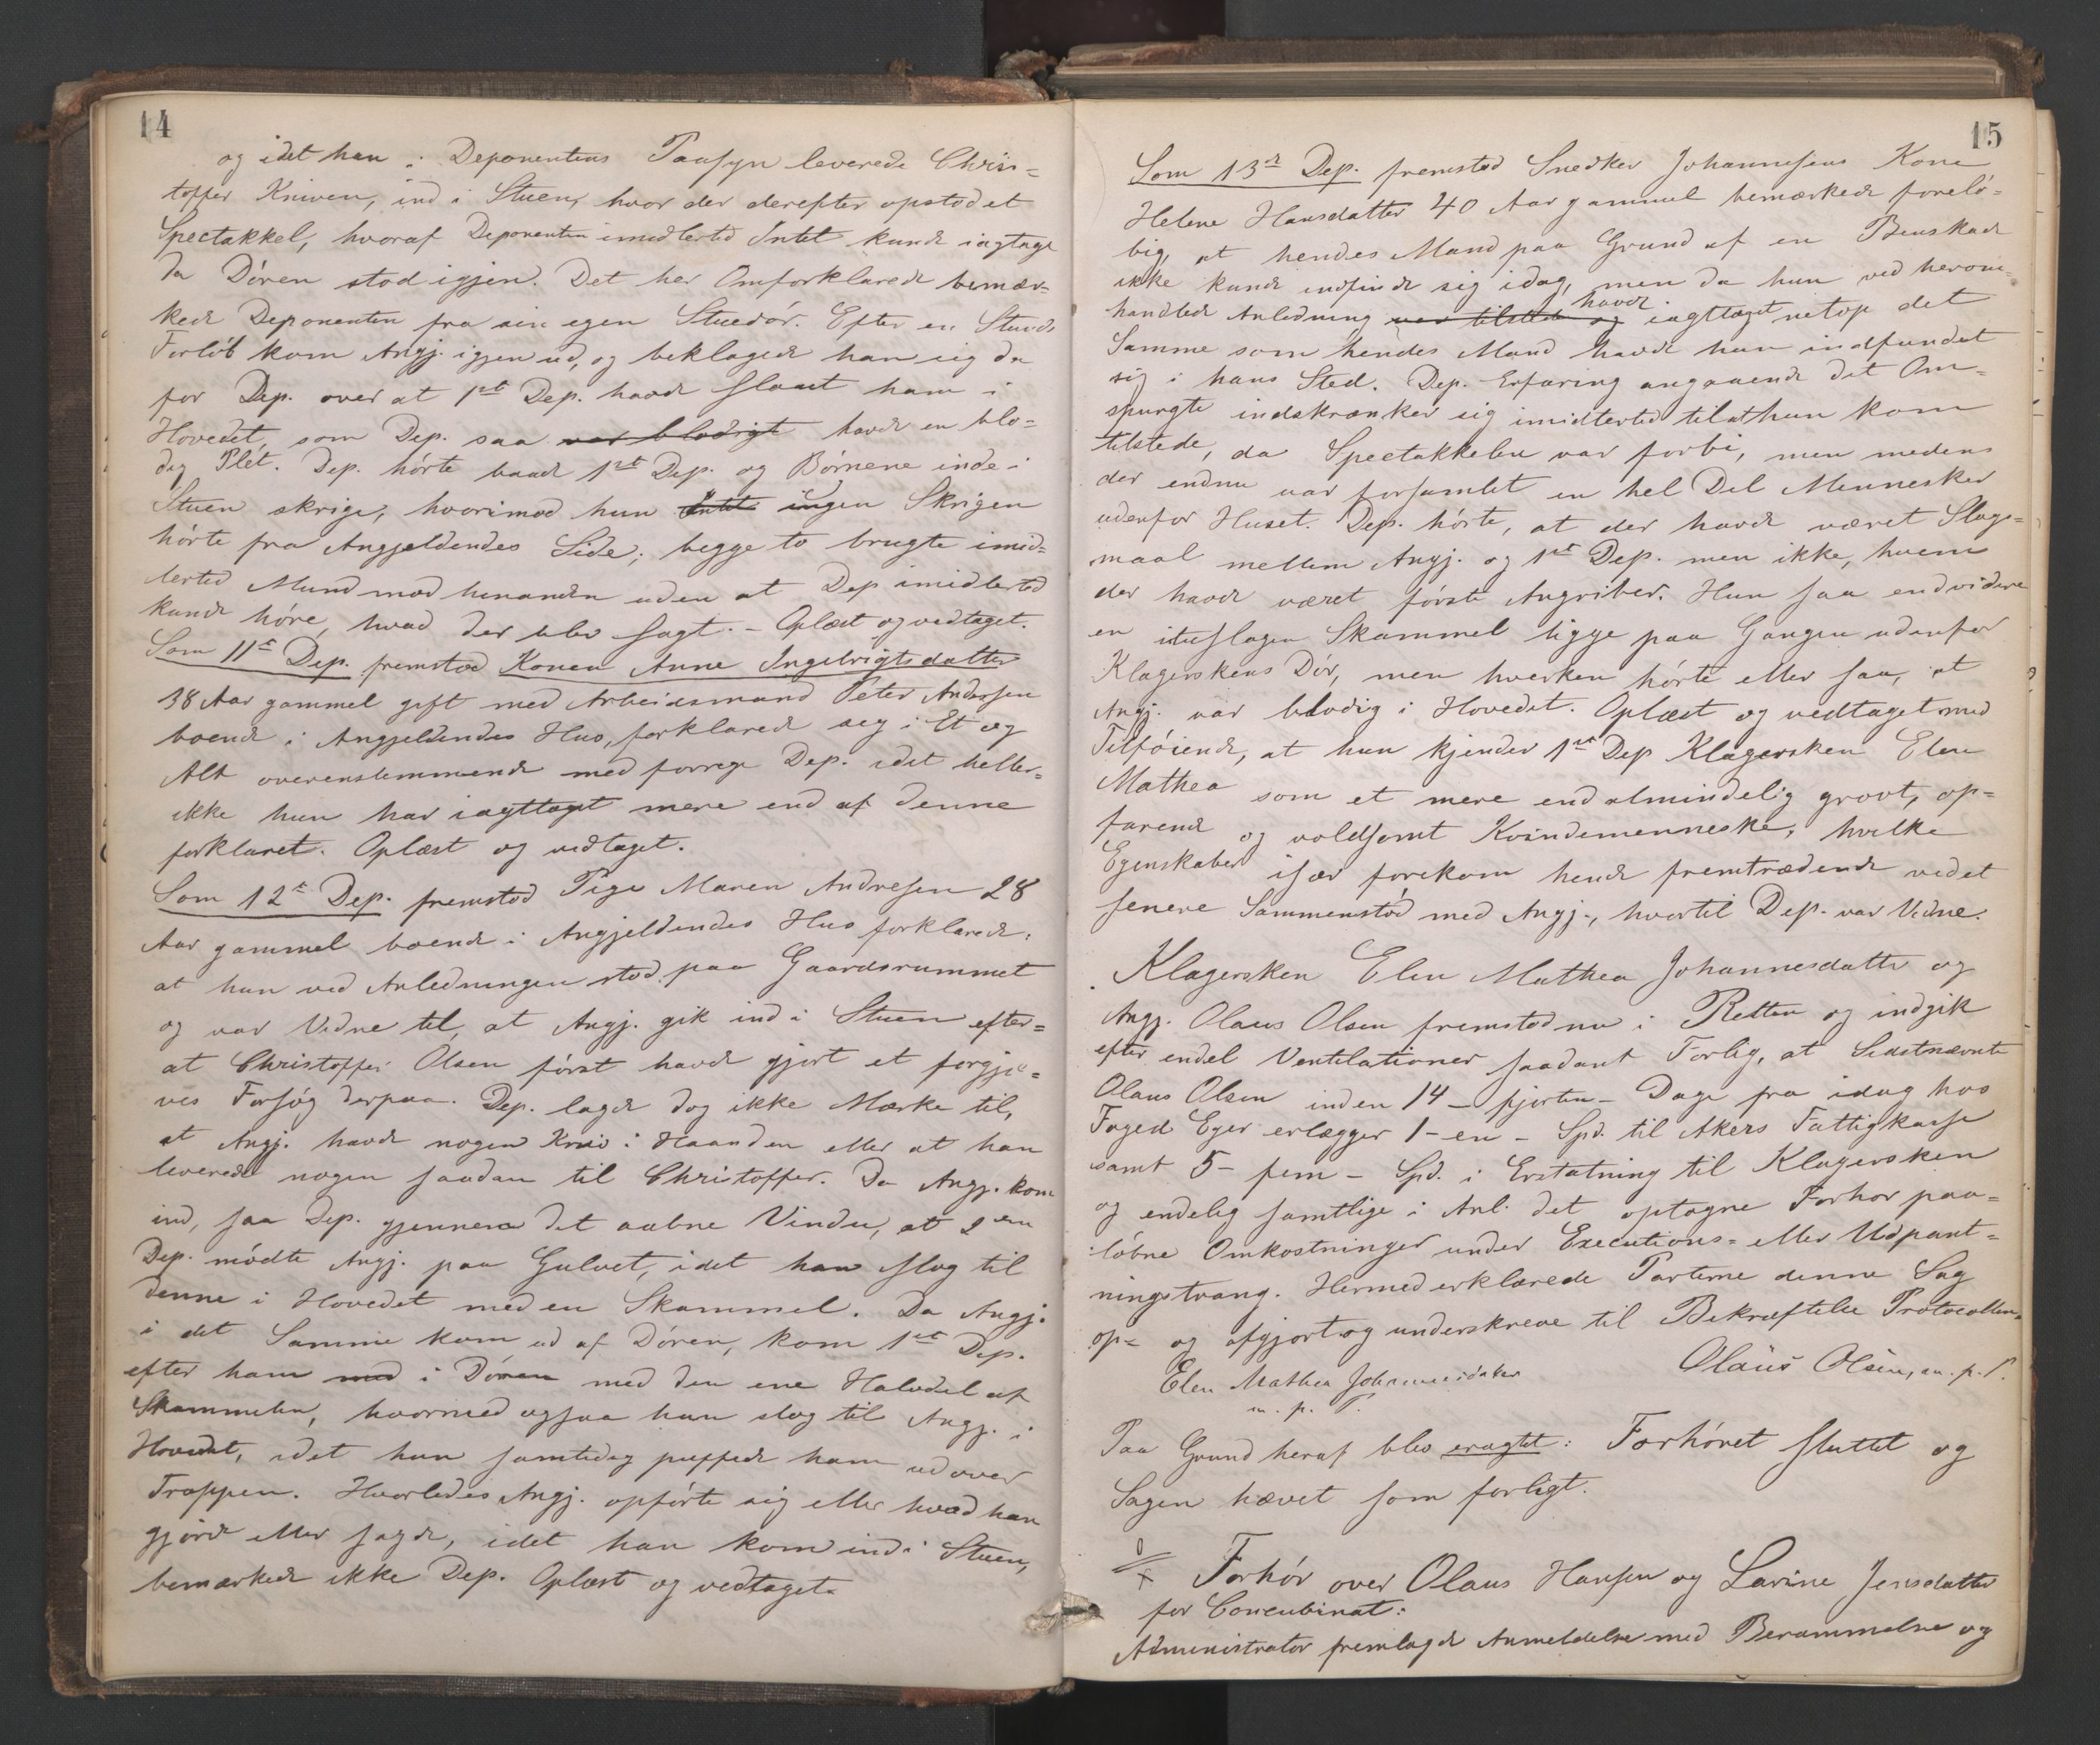 14
og idet han i Deponentens Paasyn leverede Chris-
toffer Kniven, ind i Stuen, hvor der derefter opstod et
Spectakkel, hvoraf Deponenten imidlertid Intet kunde iagtage
da Dören stod igjen. Det her Omforklarede bemær-
kede Deponenten fra sin egen Stuedör. Efter en Stunds
Forlöb kom Angj. igjen ud, og beklagede han sig da
for Dep. over at 1st Dep. havde slaaet ham i
Hovedet, som Dep. saa var blodigt havde en blo-
dig Plet. Dep. hörte baade 1st Dep. og Börnene inde i
Stuen skrige, hvorimod hun Intet ingen Skrigen
hörte fra Angjældendes Side; begge to brugte imid-
lertid Mund mod hinanden uden at Dep imidlertid
kunde höre, hvad der blev sagt. - Oplæst og vedtaget.
Som 11te Dep. fremstod Konen Anne Ingebrigtsdatter
38 Aar gammel gift med Arbeidsmand Peter Andersen
boende i Angjeldendes Hus, forklarede sig i Et og
Alt overenstemmende med forrige Dep. idet heller-
ikke hun har iagttaget mere end af denne
forklaret. Oplæst og vedtaget.
Som 12te Dep. fremstod Pige Maren Andresen 28
Aar gammel boende i Angjeldendes Hus forklarede:
at hun ved Anledningen stod paa Gaardsrummet
og var Vidne til, at Angj. gik ind i Stuen efter-
at Christoffer Olsen först havde gjort et forgjæ-
ves Forsög derpaa. Dep. lagde dog ikke Mærke til,
at Angj. havde nogen Kniv i Haanden eller at han
leverede nogen saadan til Christoffer. Da Angj. kom
ind, saa Dep. gjennem det aabne Vindu, at 2en
Dep. mödte Angj. paa Gulvet, idet han slog til
denne i Hovedet med en Skammel. Da Angj.
i det Samme kom ud af Dören, kom 1st Dep.
efter ham med i Dören med den ene Halvdel af
Skammelen, hvormed ogsaa hun slog til Angj. i
Hovedet, idet hun samtidig puffede ham ud over
Trappen. Hvorledes Angj. opförte sig eller hvad han
gjörde eller sagde, idet han kom ind i Stuen,
bemærkede ikke Dep. Oplæst og vedtaget.
15
Som 13de Dep. fremstod Snedker Johannesens Kone
Helene Hansdatter 40 Aar gammel bemærkede forelö-
big, at hendes Mand paa Grund af en Benskade
ikke kunde indfinde sig idag, men da hun ved herom-
handlede Anledning var tilstede og havde iagttaget netop det
Samme som hendes Mand havde hun indfundet
sig i hans Sted. Dep. Erfaring angaaende det Om-
spurgte indskrænker sig imidlertid til at hun kom
tilstede, da Spectakkelen var forbi, men medens
der endnu var forsamlet en hel Del Mennesker
udenfor Huset. Dep. hörte, at der havde været Slags-
maal mellem Angj. og 1st Dep. men ikke, hvem
der havde været förste Angriber. Hun saa endvidere
en ituslagen Skammel ligge paa Gangen udenfor
Klagerskens Dör, men hverken hörte eller saa, at
Angj. var blodig i Hovedet. Oplæst og vedtaget med
Tilföiende, at hun kjender 1st Dep Klagersken Elen
Mathea som et mere end almindelig grovt, op-
farende og voldsomt Kvindemenneske, hvilke
Egenskaber især forekom hende fremtrædende ved et
senere Sammenstöd med Angj., hvortil Dep. var Vidne.
Klagersken Elen Mathea Johannesdatter og
Angj. Olaus Olsen fremstod nu i Retten og indgik
efter endel Ventilationer saadant Forlig, at Sidstnævnte
Olaus Olsen inden 14 - fjorten - Dage fra idag hos
Foged Eger erlægger 1 - en - Spd. til Akers Fattigkasse
samt 5 - fem - Spd. i Erstatning til Klagersken
og endelig samtlige i Anl. det optagne Forhør paa-
löbne Omkostninger under Executions- eller Udpant-
ningstvang. Hermed erklærede Parterne denne Sag
op- og afgjort og underskreve til Bekræftelse Protocollen.
Elen Mathea Johannesdatter Olaüs Olsen, m. p. P.
m. p. P.
Paa Grund heraf blev eragtet: Forhöret sluttet og
Sagen hævet som forligt.
Forhör over Olaus Hansen og Larine Jensdatter
for Concubinat:
Administrator fremlagde Anmeldelse med Berammelse og